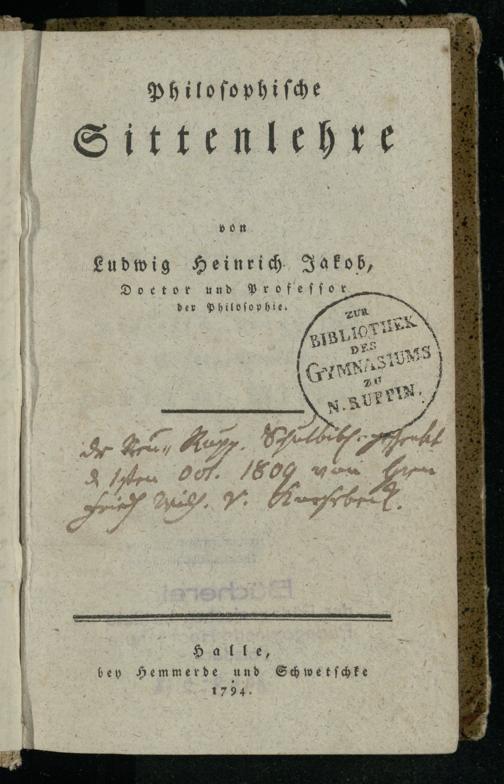 Philosophische
Sittenlehre
von
Ludwig Heinrich Jakob,
Doctor und Professor
der Philosophie.
ZUR
BIBLIOTHEK
DES
GYMNASIUMS
ZU
N. RUPPIN.
der Neu Rupp. Schulbibl. geschenkt
d. 1sten Oct. 1809 von Hrn
Fried. Wilh. v.
Bücherei
Halle,
bey Hemmerde und Schwetschke
1794.